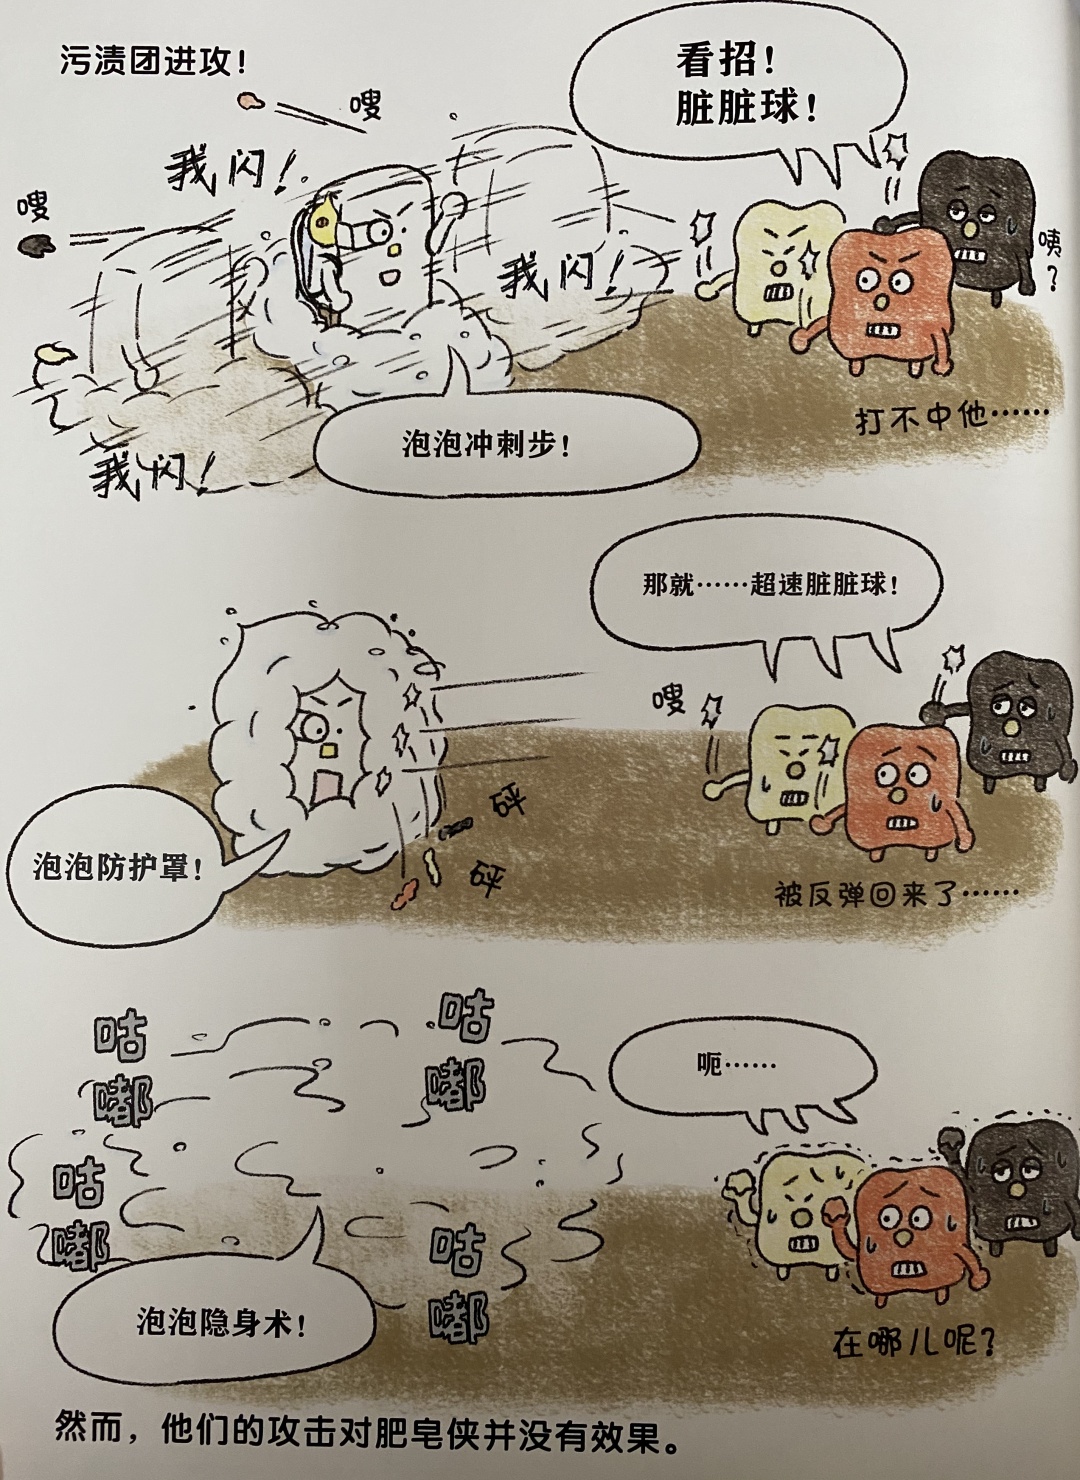 污渍团进攻！
看招！
脏脏球！
嗖
我闪！
嗖
我闪！
咦？
打不中他……
泡泡冲刺步！
我闪！
那就……超速脏脏球！
嗖
砰
砰
泡泡防护罩！
被反弹回来了……
咕嘟
咕嘟
呃……
咕嘟
咕嘟
泡泡隐身术！
在哪儿呢？
然而，他们的攻击对肥皂侠并没有效果。